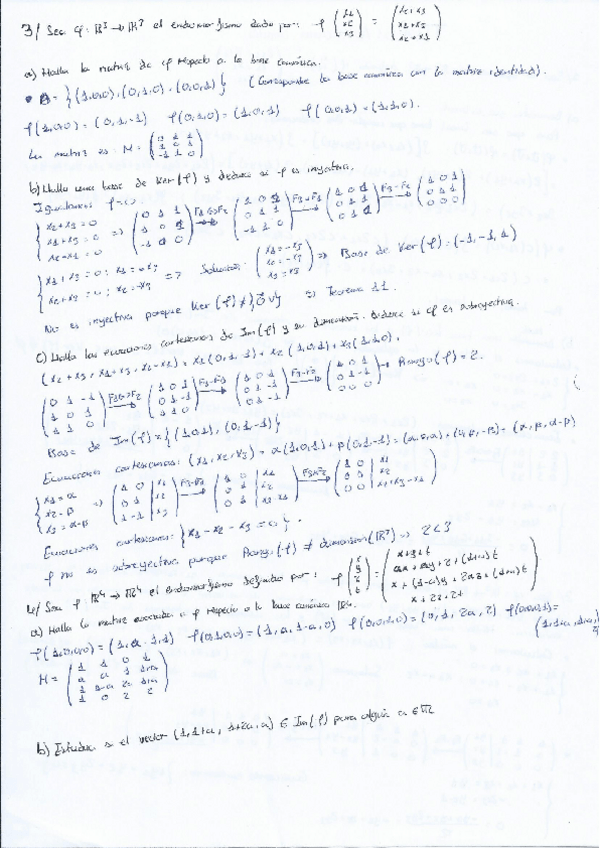 3/ Sea φ: ℝ³ → ℝ³ el endomorfismo dado por: φ (x1 x2 x3) = (x2+x3 x1+x3 x2-x1)
a) Halla la matriz de φ respecto a la base canónica.
• B = {(1,0,0), (0,1,0), (0,0,1)} (Corresponde la base canónica con la matriz identidad).
f(1,0,0) = (0,1,-1) f(0,1,0) = (1,0,1) f(0,0,1) = (1,1,0).
La matriz es: M = (0 1 1 / 1 0 1 / -1 1 0)
b) Halla una base de Ker(f) y deduce si f es inyectiva.
Igualamos f=0:
{x2+x3=0 x1+x3=0 x2-x1=0 => (0 1 1 / 1 0 1 / -1 1 0) F1<->F2 (1 0 1 / 0 1 1 / -1 1 0) F3+F1 (1 0 1 / 0 1 1 / 0 1 1) F3-F2 (1 0 1 / 0 1 1 / 0 0 0)
{x1+x3=0; x1=-x3 x2+x3=0; x2=-x3 => Solución: {x1=-x3 x2=-x3 x3=x3 => Base de Ker(f): (-1,-1,1)
No es inyectiva porque Ker(f) ≠ {0v} => Teorema 11.
c) Halla las ecuaciones cartesianas de Im(f) y su dimensión. Deduce si f es sobreyectiva.
(x2+x3, x1+x3, x2-x1) = x1(0,1,-1) + x2(1,0,1) + x3(1,1,0).
(0 1 -1 / 1 0 1 / 1 1 0) F1<->F2 (1 0 1 / 0 1 -1 / 1 1 0) F3-F1 (1 0 1 / 0 1 -1 / 0 1 -1) F3-F2 (1 0 1 / 0 1 -1 / 0 0 0) → Rango(f) = 2.
Base de Im(f) = {(1,0,1), (0,1,-1)}
Ecuaciones cartesianas: (x1,x2,x3) = α(1,0,1) + β(0,1,-1) = (α,0,α) + (0,β,-β) = (α,β,α-β)
{x1=α x2=β x3=α-β => (1 0 | x1 / 0 1 | x2 / 1 -1 | x3) F3-F1 (1 0 | x1 / 0 1 | x2 / 0 -1 | x3-x1) F3+F2 (1 0 | x1 / 0 1 | x2 / 0 0 | x2+x3-x1)
Ecuaciones cartesianas: {x1-x2-x3=0}.
f no es sobreyectiva porque Rango(f) ≠ dimensión(ℝ³) => 2<3
4/ Sea f: ℝ⁴ → ℝ⁴ el endomorfismo definido por: f (x y z t) = (x+y+t ax+ay+z+(1+a)t x+(1-a)y+2az+(1+a)t x+2z+2t)
a) Halla la matriz asociada a f respecto a la base canónica ℝ⁴.
f(1,0,0,0) = (1,a,1,1) f(0,1,0,0) = (1,a,1-a,0) f(0,0,1,0) = (0,1,2a,2) f(0,0,0,1) = (1,1+a,1+a,2)
M = (1 1 0 1 / a a 1 1+a / 1 1-a 2a 1+a / 1 0 2 2)
b) Estudia si el vector (1,1+a,1+2a,a) ∈ Im(f) para algún a ∈ ℝ